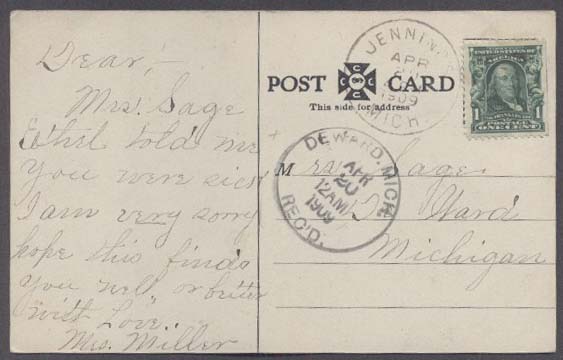 Dear,-
Mrs. Sage
Ethel told me
you were sick
I am very sorry
hope this finds
you well or better
with Love.
Mrs. Miller
POST CARD
This side for address
JENNIN
APR
1909
MICH.
UNITED STATES OF AMERICA
1 1
POSTAGE
ONE CENT
DEWARD, MICH.
APR
20
12AM
1909
REC'D.
Mrs Sage
De Ward
Michigan